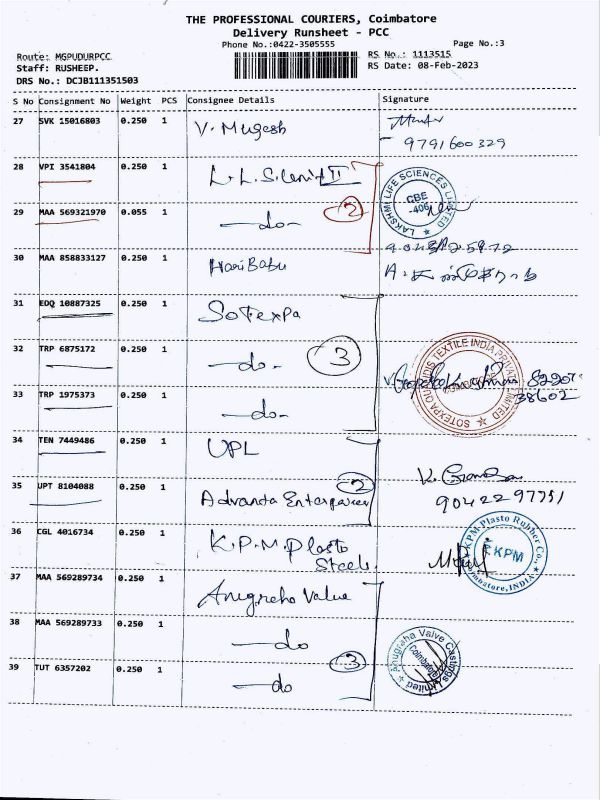 THE PROFESSIONAL COURIERS, Coimbatore
Delivery Runsheet - PCC
Phone No.:0422-3505555 Page No.:3
Route: MGPUDURPCC RS No.: 1113515
Staff: RUSHEEP. RS Date: 08-Feb-2023
DRS No.: DCJB111351503
S No Consignment No Weight PCS Consignee Details Signature
27 SVK 15016803 0.250 1 V. Mugesh
9791600329
28 VPI 3541804 0.250 1 L.L.S. Unit II
LAKSHMI LIFE SCIENCES LIMITED CBE -406
29 MAA 569321970 0.055 1 —do— 2
30 MAA 858833127 0.250 1 Hari Babu
31 EOQ 10887325 0.250 1 Sotexpa
32 TRP 6875172 0.250 1 —do— 3
SOTEXPA QUALIDIS TEXTILE INDIA PRIVATE LIMITED
33 TRP 1975373 0.250 1 —do— 38602
34 TEN 7449486 0.250 1 UPL
35 UPT 8104088 0.250 1 Advanta Enterprises 2
36 CGL 4016734 0.250 1 K.P.M. Plasto
Steels
KPM-Plasto Rubber Co., KPM Coimbatore, INDIA
37 MAA 569289734 0.250 1 Anugraha Value
38 MAA 569289733 0.250 1 —do
39 TUT 6357202 0.250 1 —do 3
Anugraha Valve Castings Limited Coimbatore